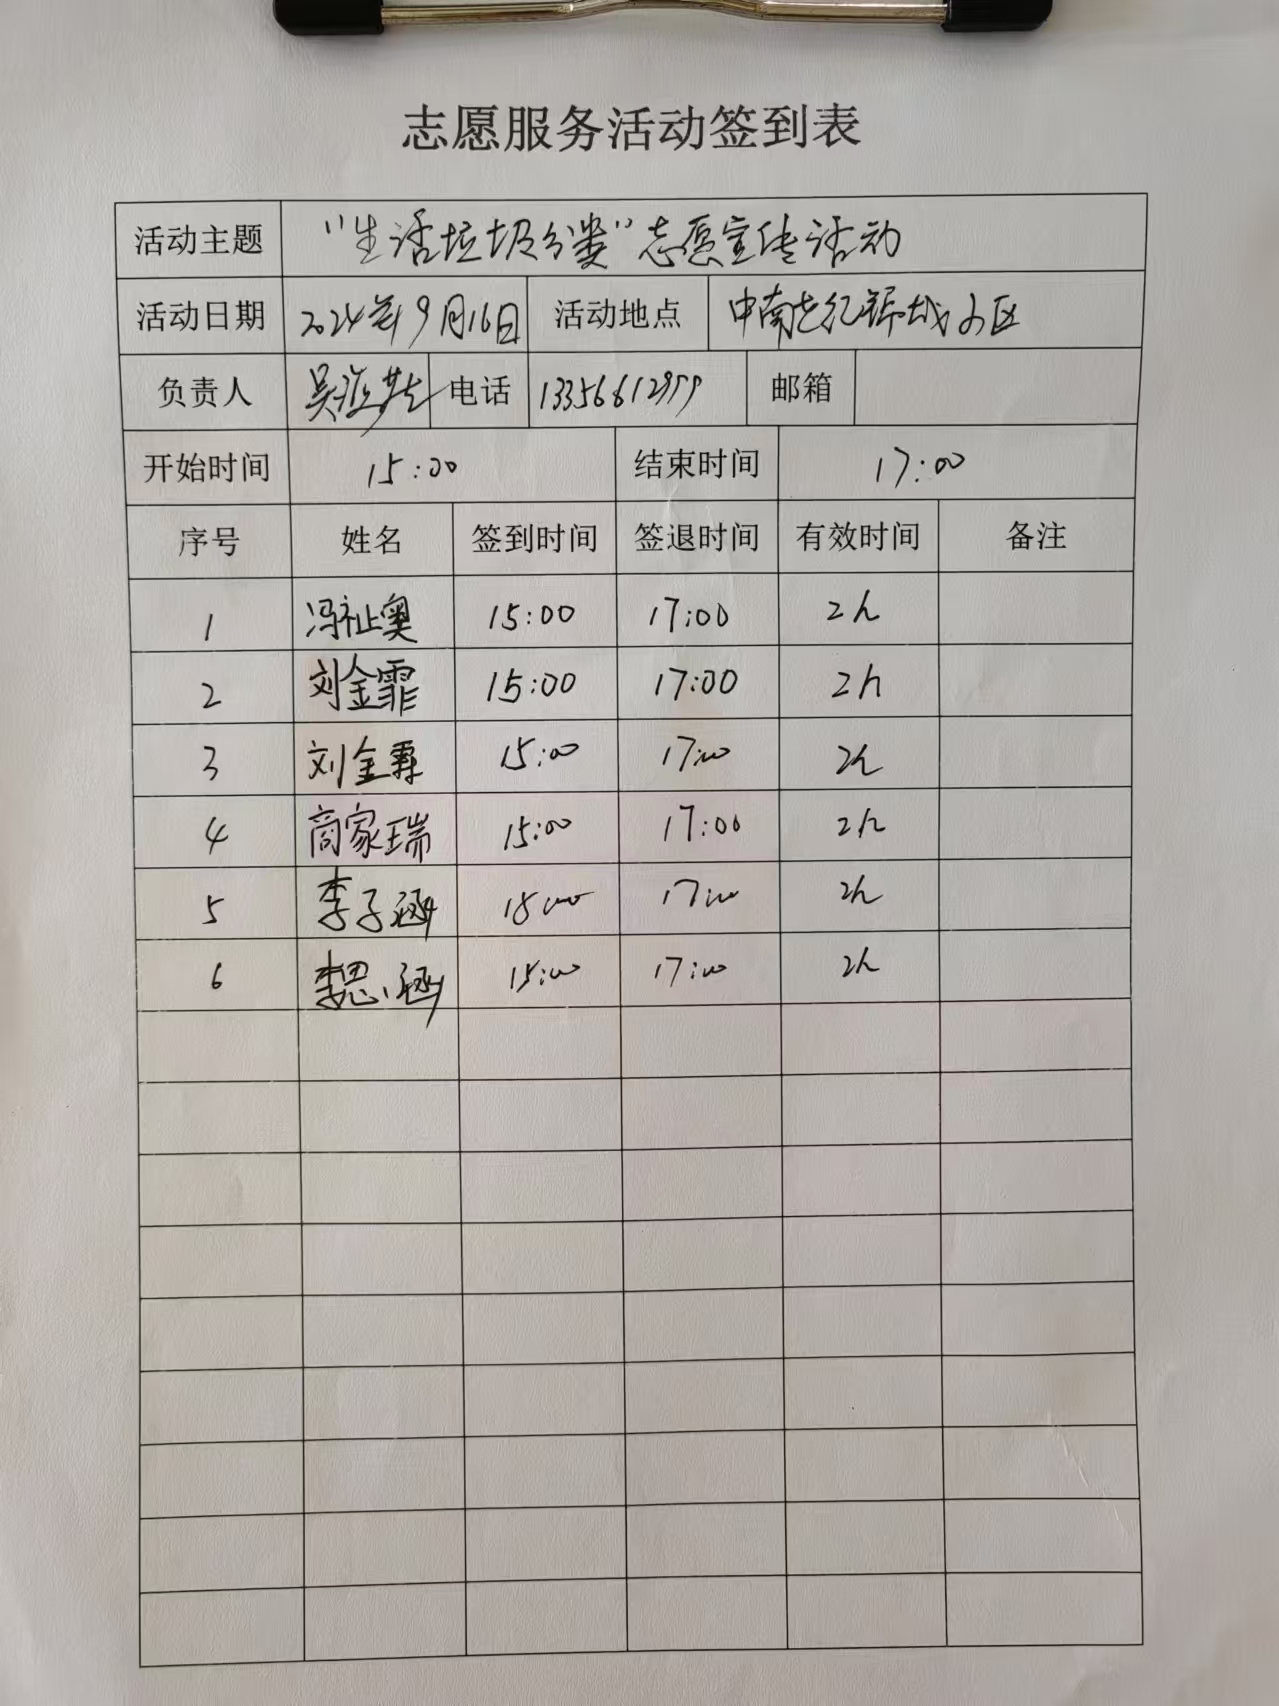 志愿服务活动签到表
活动主题 “生活垃圾分类”志愿宣传活动
活动日期 2024年9月16日 活动地点 中南世纪锦城小区
负责人 吴 电话 邮箱
开始时间 15:00 结束时间 17:00
序号 姓名 签到时间 签退时间 有效时间 备注
1 冯祉奥 15:00 17:00 2h
2 刘金霏 15:00 17:00 2h
3 刘金霖 15:00 17:00 2h
4 商家瑞 15:00 17:00 2h
5 李子涵 15:00 17:00 2h
6 李思涵 15:00 17:00 2h